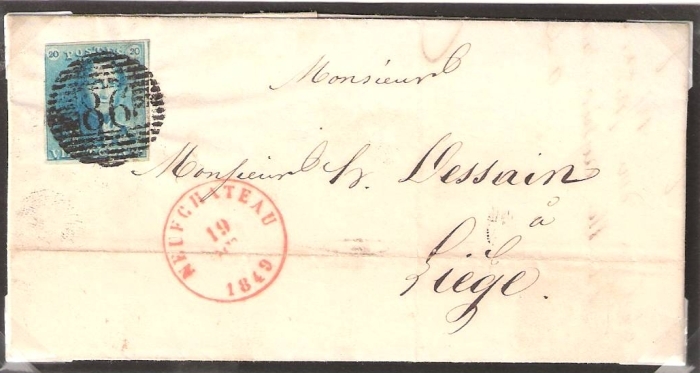 20 POSTES 20
86
Monsieur
Monsieur h. Dessain
à
Liége.
NEUFCHATEAU
19
1849